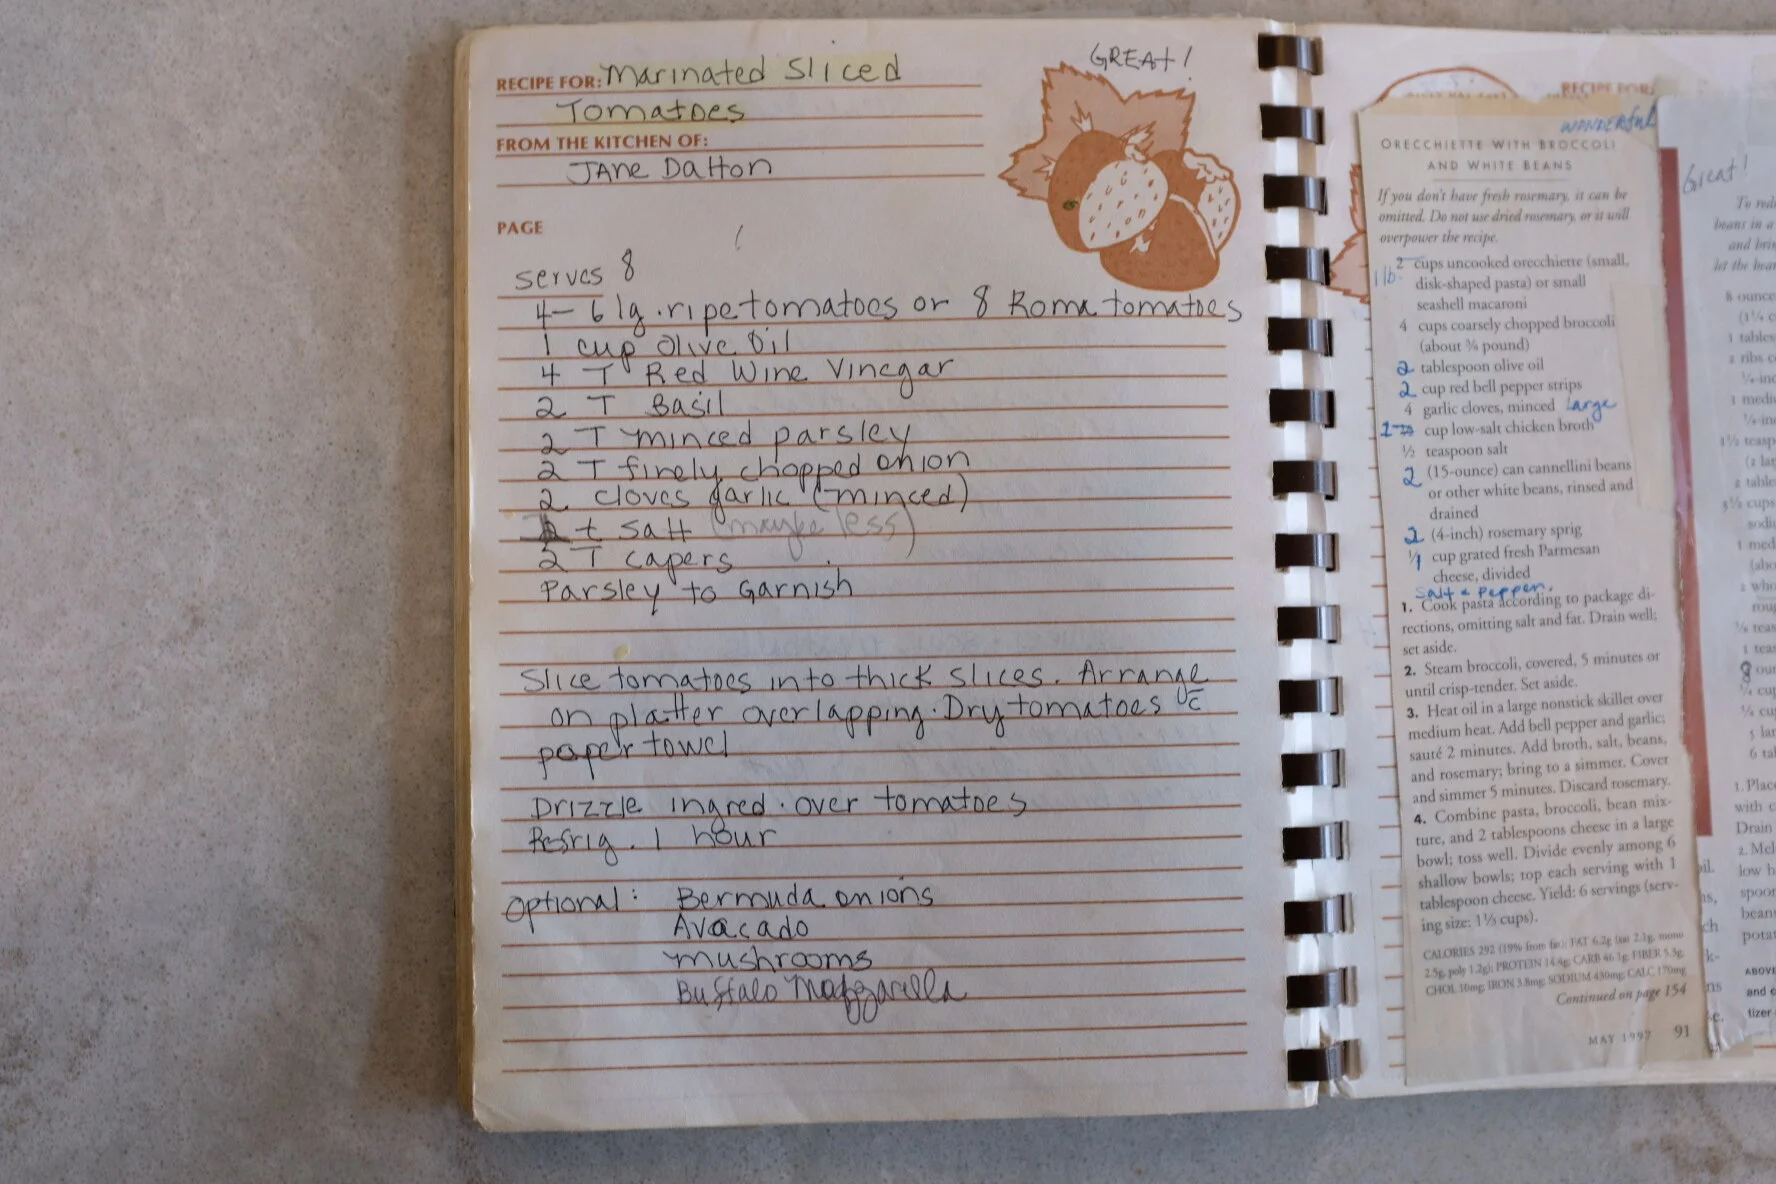 GREAT!
RECIPE FOR: Marinated Sliced
Tomatoes
FROM THE KITCHEN OF:
JANE Dalton
PAGE
serves 8
4-6 lg. ripe tomatoes or 8 Roma tomatoes
1 cup Olive Oil
4 T Red Wine Vinegar
2 T Basil
2 T minced parsley
2 T finely chopped onion
2 cloves garlic (minced)
t salt (maybe less)
2 T capers
Parsley to Garnish
Slice tomatoes into thick slices. Arrange
on platter overlapping. Dry tomatoes c̄
paper towel
Drizzle ingred. over tomatoes
Refrig. 1 hour
Optional: Bermuda onions
Avacado
mushrooms
Buffalo Mozzarella
RECIPE FOR:
WONDERFUL
ORECCHIETTE WITH BROCCOLI
AND WHITE BEANS
If you don't have fresh rosemary, it can be
omitted. Do not use dried rosemary, or it will
overpower the recipe.
1 lb.
2 cups uncooked orecchiette (small,
disk-shaped pasta) or small
seashell macaroni
4 cups coarsely chopped broccoli
(about ¾ pound)
2 tablespoon olive oil
2 cup red bell pepper strips
4 garlic cloves, minced Large
cup low-salt chicken broth
½ teaspoon salt
2 (15-ounce) can cannellini beans
or other white beans, rinsed and
drained
2 (4-inch) rosemary sprig
cup grated fresh Parmesan
cheese, divided
Salt & Pepper.
1. Cook pasta according to package di-
rections, omitting salt and fat. Drain well;
set aside.
2. Steam broccoli, covered, 5 minutes or
until crisp-tender. Set aside.
3. Heat oil in a large nonstick skillet over
medium heat. Add bell pepper and garlic;
sauté 2 minutes. Add broth, salt, beans,
and rosemary; bring to a simmer. Cover
and simmer 5 minutes. Discard rosemary.
4. Combine pasta, broccoli, bean mix-
ture, and 2 tablespoons cheese in a large
bowl; toss well. Divide evenly among 6
shallow bowls; top each serving with 1
tablespoon cheese. Yield: 6 servings (serv-
ing size: 1⅓ cups).
CALORIES 292 (19% from fat); FAT 6.2g (sat 2.1g, mono
2.5g, poly 1.2g); PROTEIN 14.4g; CARB 46.1g; FIBER 5.5g;
CHOL 10mg; IRON 3.8mg; SODIUM 430mg; CALC 170mg
Continued on page 154
MAY 1997 91
Great!
beans in a
let the
8 ounce
2 ribs
1 medi
3½ cups
1 med
8
1. Place
with
Drain
2.
low
beans
ABOVE
and